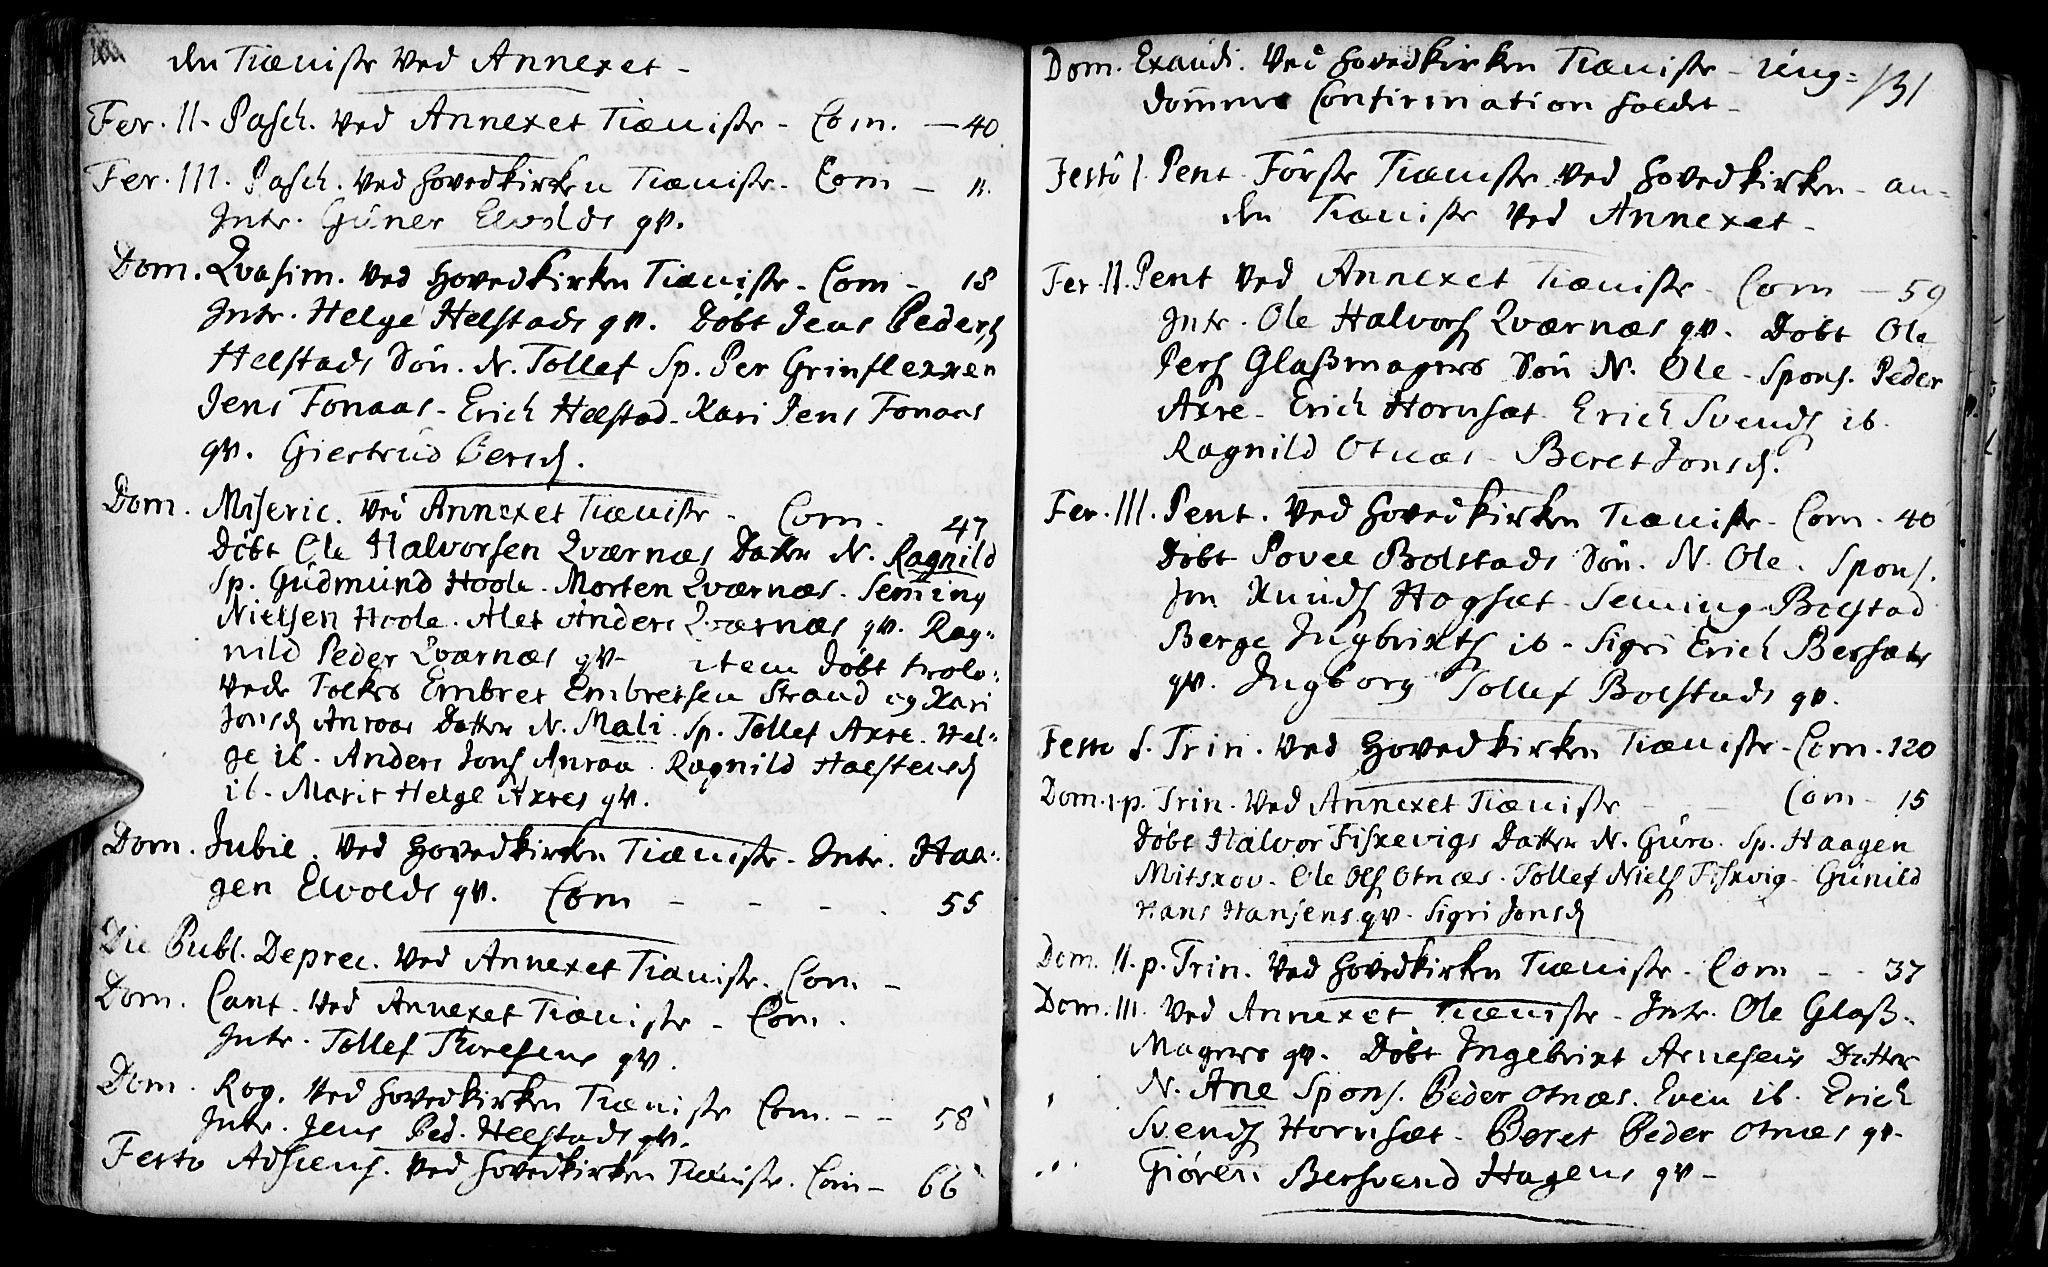 den Tieniste ved Annexet -
Fer. II. Pasch. ved Annexet Tieniste - Com. — 40.
Fer. III. Pasch. ved Hovedkirken Tieniste - Com — 11.
Intr. Guner Elvolds qv.
Dom. Qvasim. ved Hovedkirken Tieniste - Com - 18
Intr. Helge Helstads qv. Døbt Jens Peders
Helstads Søn. N. Tollef Sp. Per Grinflexxen
Jens Fonaas - Erich Helstad - Kari Jens Fonaas
qv. Giertrud Persd.
Dom. Miseric. ved Annexet Tieniste - Com. 47
Døbt Ole Halvorsen Qværnæs Datter N. Ragnild
Sp. Gudmund Hoole - Morten Qværnæs - Seming
Nielsen Hoole. Alet Anders Qværnæs qv. Rag=
nild Peder Qværnæs qv - item døbt trolo=
vede Folkes Embret Embretsen Strand og Kari
Jonsd Anraas Datter N. Mali. Sp. Tollef Axre. Hel=
ge ib. Anders Jons Anraa. Ragnild Halstensd
ib. Marit Helge Axres qv.
Dom. Jubil. ved Hovedkirken Tieniste - Intr. Haa=
gen Elvolds qv. Com - - - . 55
Die Publ. Deprec. ved Annexet Tieniste. Com -
Dom. Cant. ved Annexet Tieniste - Com.
Intr. Tollef Thoresens qv.
Dom. Rog. ved Hovedkirken Tieniste Com. - - 58
Intr. Jens Ped. Helstads qv.
Festo Adscens. ved Hovedkirken Tieniste. Com - 66
Dom. Exaudi. ved Hovedkirken Tieniste - ung= 131
dommens Confirmation holdet -
Festo S. Pent. Förste Tieniste ved Hovedkirken - an=
den Tieniste ved Annexet -
Fer. II. Pent ved Annexet Tieniste - Com — 59
Intr. Ole Halvors Qværnæs qv. Døbt Ole
Pers Glaßmagers Søn N. Ole - Spons. Peder
Axre - Erich Hornsæt - Erich Svends ib.
Ragnild Otnæs - Beret Jonsd.
Fer. III. Pent. ved Hovedkirken Tieniste - Com. 40
Døbt Povel Bolstads Søn. N. Ole. Spons.
Jon Knuds Hogsæt - Seming Bolstad
Berge Ingbrixts ib - Sigri Erich Bersæts
qv. Ingborg Tollef Bolstads qv.
Festo S. Trin. ved Hovedkirken Tieniste - Com. 120
Dom. 1. p. Trin. ved Annexet Tieniste - - Com - 15
Døbt Halvor Fiskevigs Datter N. Guro. Sp. Haagen
Mitskov - Ole Ols Otnæs. Tollef Niels Fiskvig - Gunild
Hans Hansens qv - Sigri Jonsd
Dom. II. p. Trin. ved Hovedkirken Tieniste - Com - - 37
Dom. III. ved Annexet Tieniste - Intr. Ole Glaß-
Magers qv. Døbt Ingebrixt Arnesens Datter
N. Ane Spons. Peder Otnæs. Even ib. Erich
Svends Hornsæt - Beret Peder Otnæs qv -
Giøren Bersvend Hagens qv -